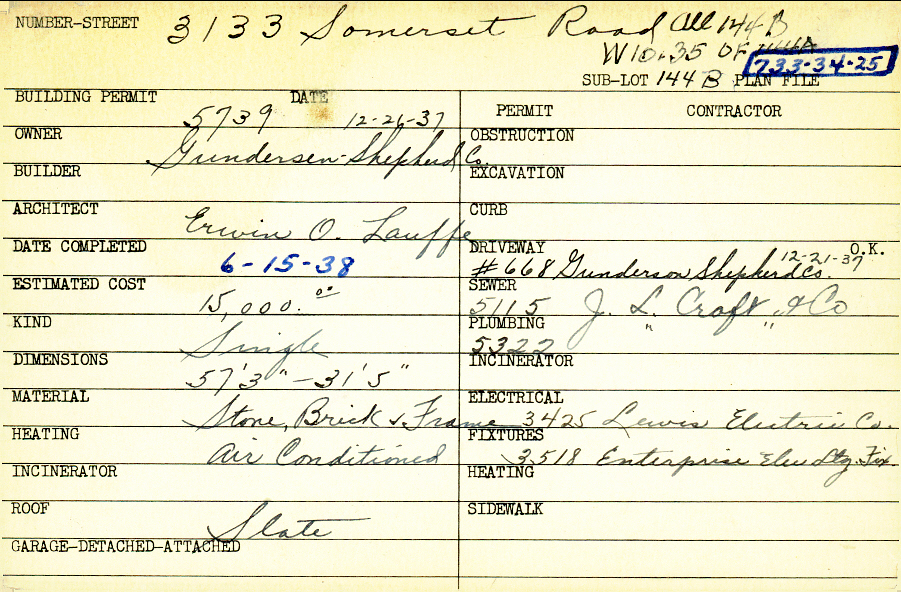 NUMBER-STREET 3133 Somerset Road All 144 B
W 10.35 OF 144A
733-34-25
SUB-LOT 144 B PLAN FILE
BUILDING PERMIT 5739 DATE 12-21-37
OWNER Gundersen-Shepherd Co.
BUILDER
ARCHITECT Erwin O. Lauffe
DATE COMPLETED 6-15-38
ESTIMATED COST 15,000.00
KIND Single
DIMENSIONS 57'3" - 31'5"
MATERIAL Stone, Brick & Frame
HEATING Air Conditioned
INCINERATOR
ROOF Slate
GARAGE-DETACHED-ATTACHED
PERMIT CONTRACTOR
OBSTRUCTION
EXCAVATION
CURB
DRIVEWAY 12-21-37 O.K.
#668 Gunderson Shepherd Co.
SEWER
5115 J. L. Croft & Co
PLUMBING " "
5322
INCINERATOR
ELECTRICAL
3425 Lewis Electric Co.
FIXTURES
3518 Enterprise Elec Ltg. Fix.
HEATING
SIDEWALK